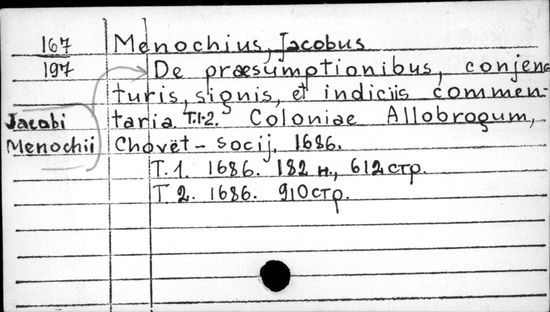 167
197
Menochius, Jacobus
De præsumptionibus, conjen-
turis, signis, et indiciis commen-
taria. T.1-2. Coloniae Allobrogum,
Chovët - socij, 1686.
T. 1. 1686. 182 н., 612 стр.
T. 2. 1686. 910 стр.
Jacobi
Menochii